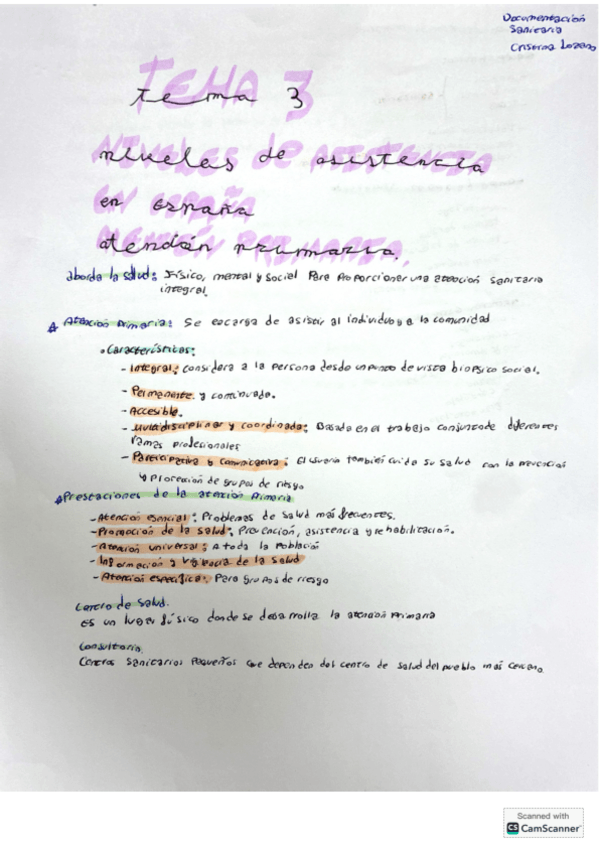 Documentación
Sanitaria
Cristina Lozano
TEMA 3
tema 3
niveles de asistencia
en España
atención primaria.
aborda la salud: Físico, mental y Social Para Proporcionar una atención sanitaria
integral.
Atención Primaria: Se encarga de asistir al individuo y a la comunidad
Características:
- Integral: considera a la persona desde un punto de vista biopsico social.
- Permanente y continuada.
- Accesible.
- Multidisciplinar y coordinada: Basada en el trabajo conjunto de diferentes
ramas profesionales
- Participativa y comunicativa: El usuario también cuida su salud con la prevención
y Protección de grupos de riesgo
Prestaciones de la atención Primaria
- Atención esencial: Problemas de salud más frecuentes.
- Promoción de la salud: Prevención, asistencia y rehabilitación.
- Atención universal: A toda la Población
- Información y vigilancia de la salud
- Atención específica: Para grupos de riesgo
Centro de salud.
Es un lugar físico donde se desarrolla la atención Primaria
Consultorio
Centros sanitarios Pequeños que dependen del centro de salud del pueblo más cercano.
Scanned with
CS CamScanner